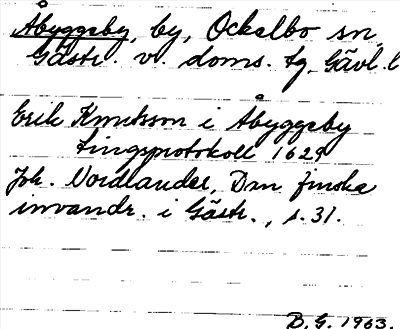 Åbyggeby, by, Ockelbo sn,
Gästr. v. doms. tg, Gävl. l
Erik Knutsson i Åbyggeby
tingsprotokoll 1629
Joh. Nordlander, Den finska
invandr. i Gästr., s. 31.
B. G. 1963.